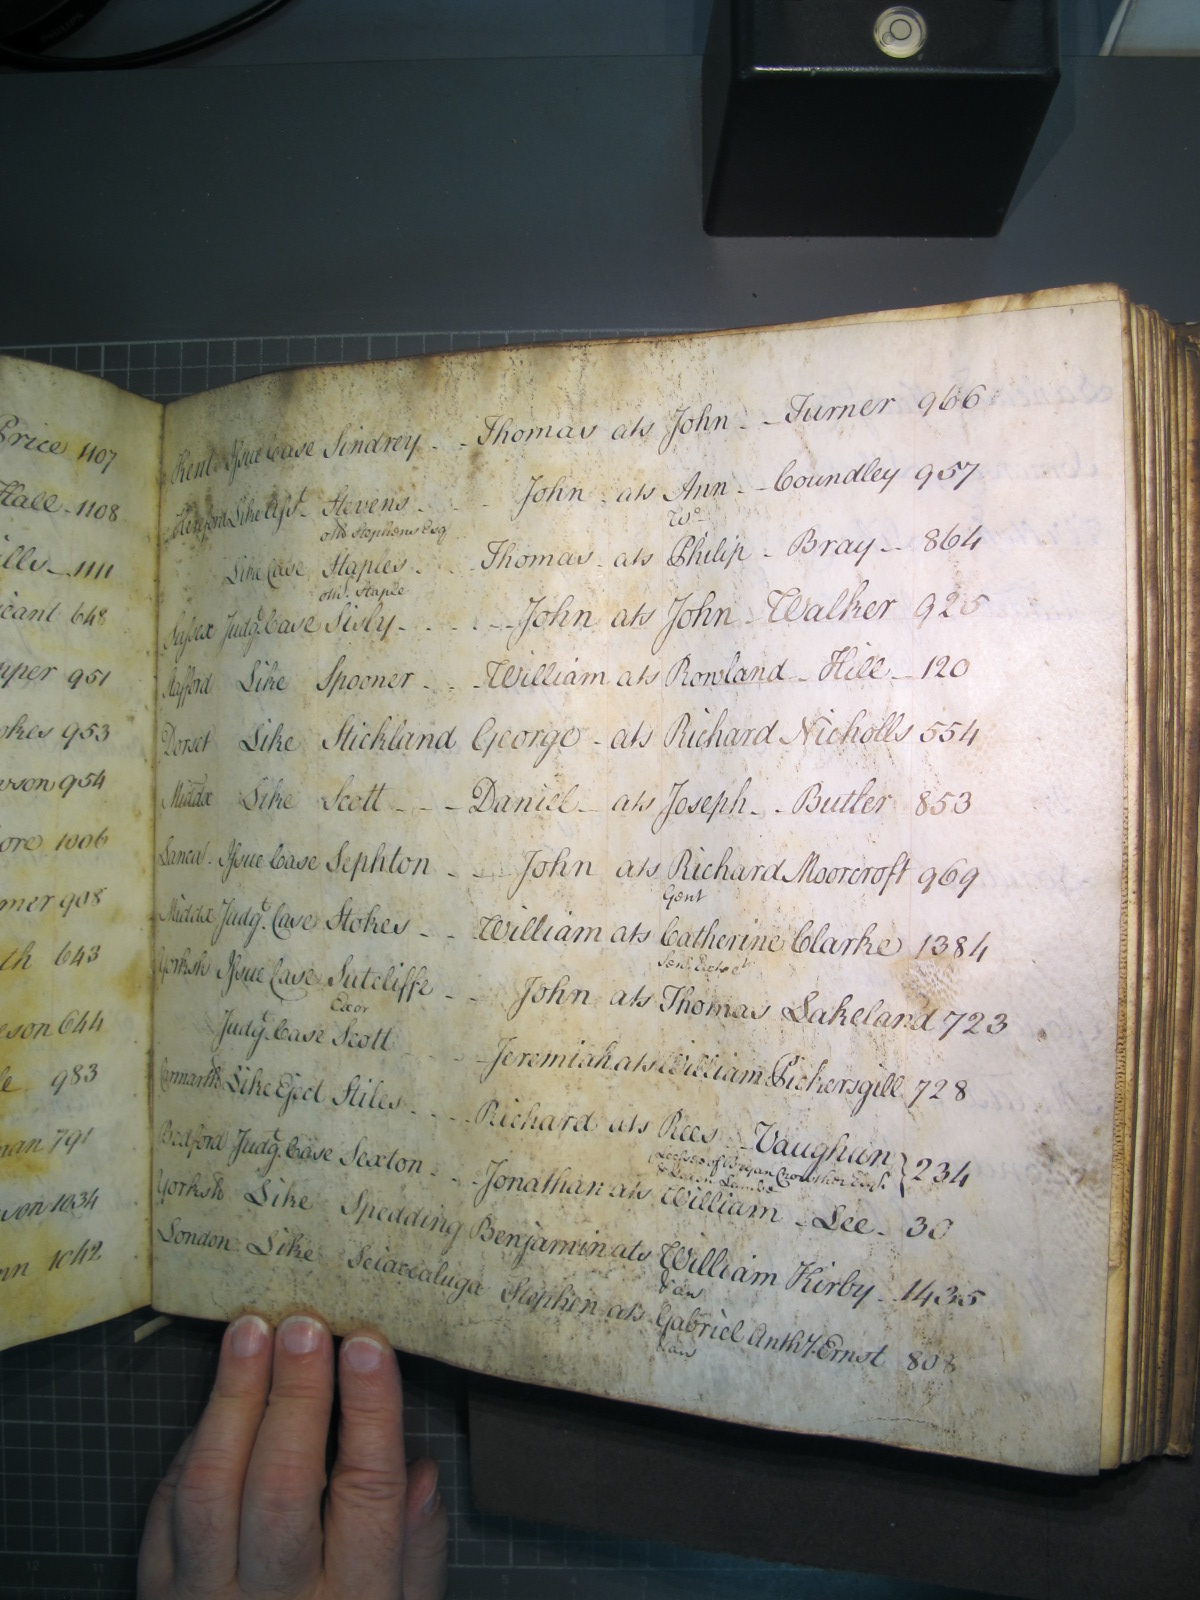 Price 1107
Hall - 1108
ills - 1111
icant 648
pper 951
okes 953
wson 954
ore 1006
mer 908
th 643
eson 644
le 983
man 791
son 1034
nn 1042
Kent Issue Case Sindrey - - Thomas ats John - - Turner 966
Hereford Like Asst. Stevens - - John - ats Ann - - Coundley 957
otho Stephens Esq Wo.
Like Case Staples - - Thomas - ats Philip - Bray - - 864
othô. Staple
Sussex Judgt. Case Sisly - - - - John ats John - Walker 925
Stafford Like Spooner - - William ats Rowland - Hill - - 120
Dorset Like Stickland George - ats Richard Nicholls 554
Middx Like Scott - - - Daniel - ats Joseph - - Butler 853
Lancar. Issue Case Sephton - - John ats Richard Moorcroft 969
Gent
Middx Judgt. Case Stokes - - William ats Catherine Clarke 1384
Yorksh Issue Case Sutcliffe - - John ats Thomas Lakeland 723
Exor
Judgt. Case Scott - - Jeremiah ats William Pickersgill 728
Carmarth Like Eject Stiles - - - Richard ats Rees - Vaughan } 234
Lessee of Bryan Crowther
Bedford Judgt. Case Sexton - - Jonathan ats William - Lee - 30
Yorksh Like Spedding Benjamin ats William Kirby - 1435
& an
London Like Sciaccaluga Stephen ats Gabriel Anthy. Ernst 808
& an